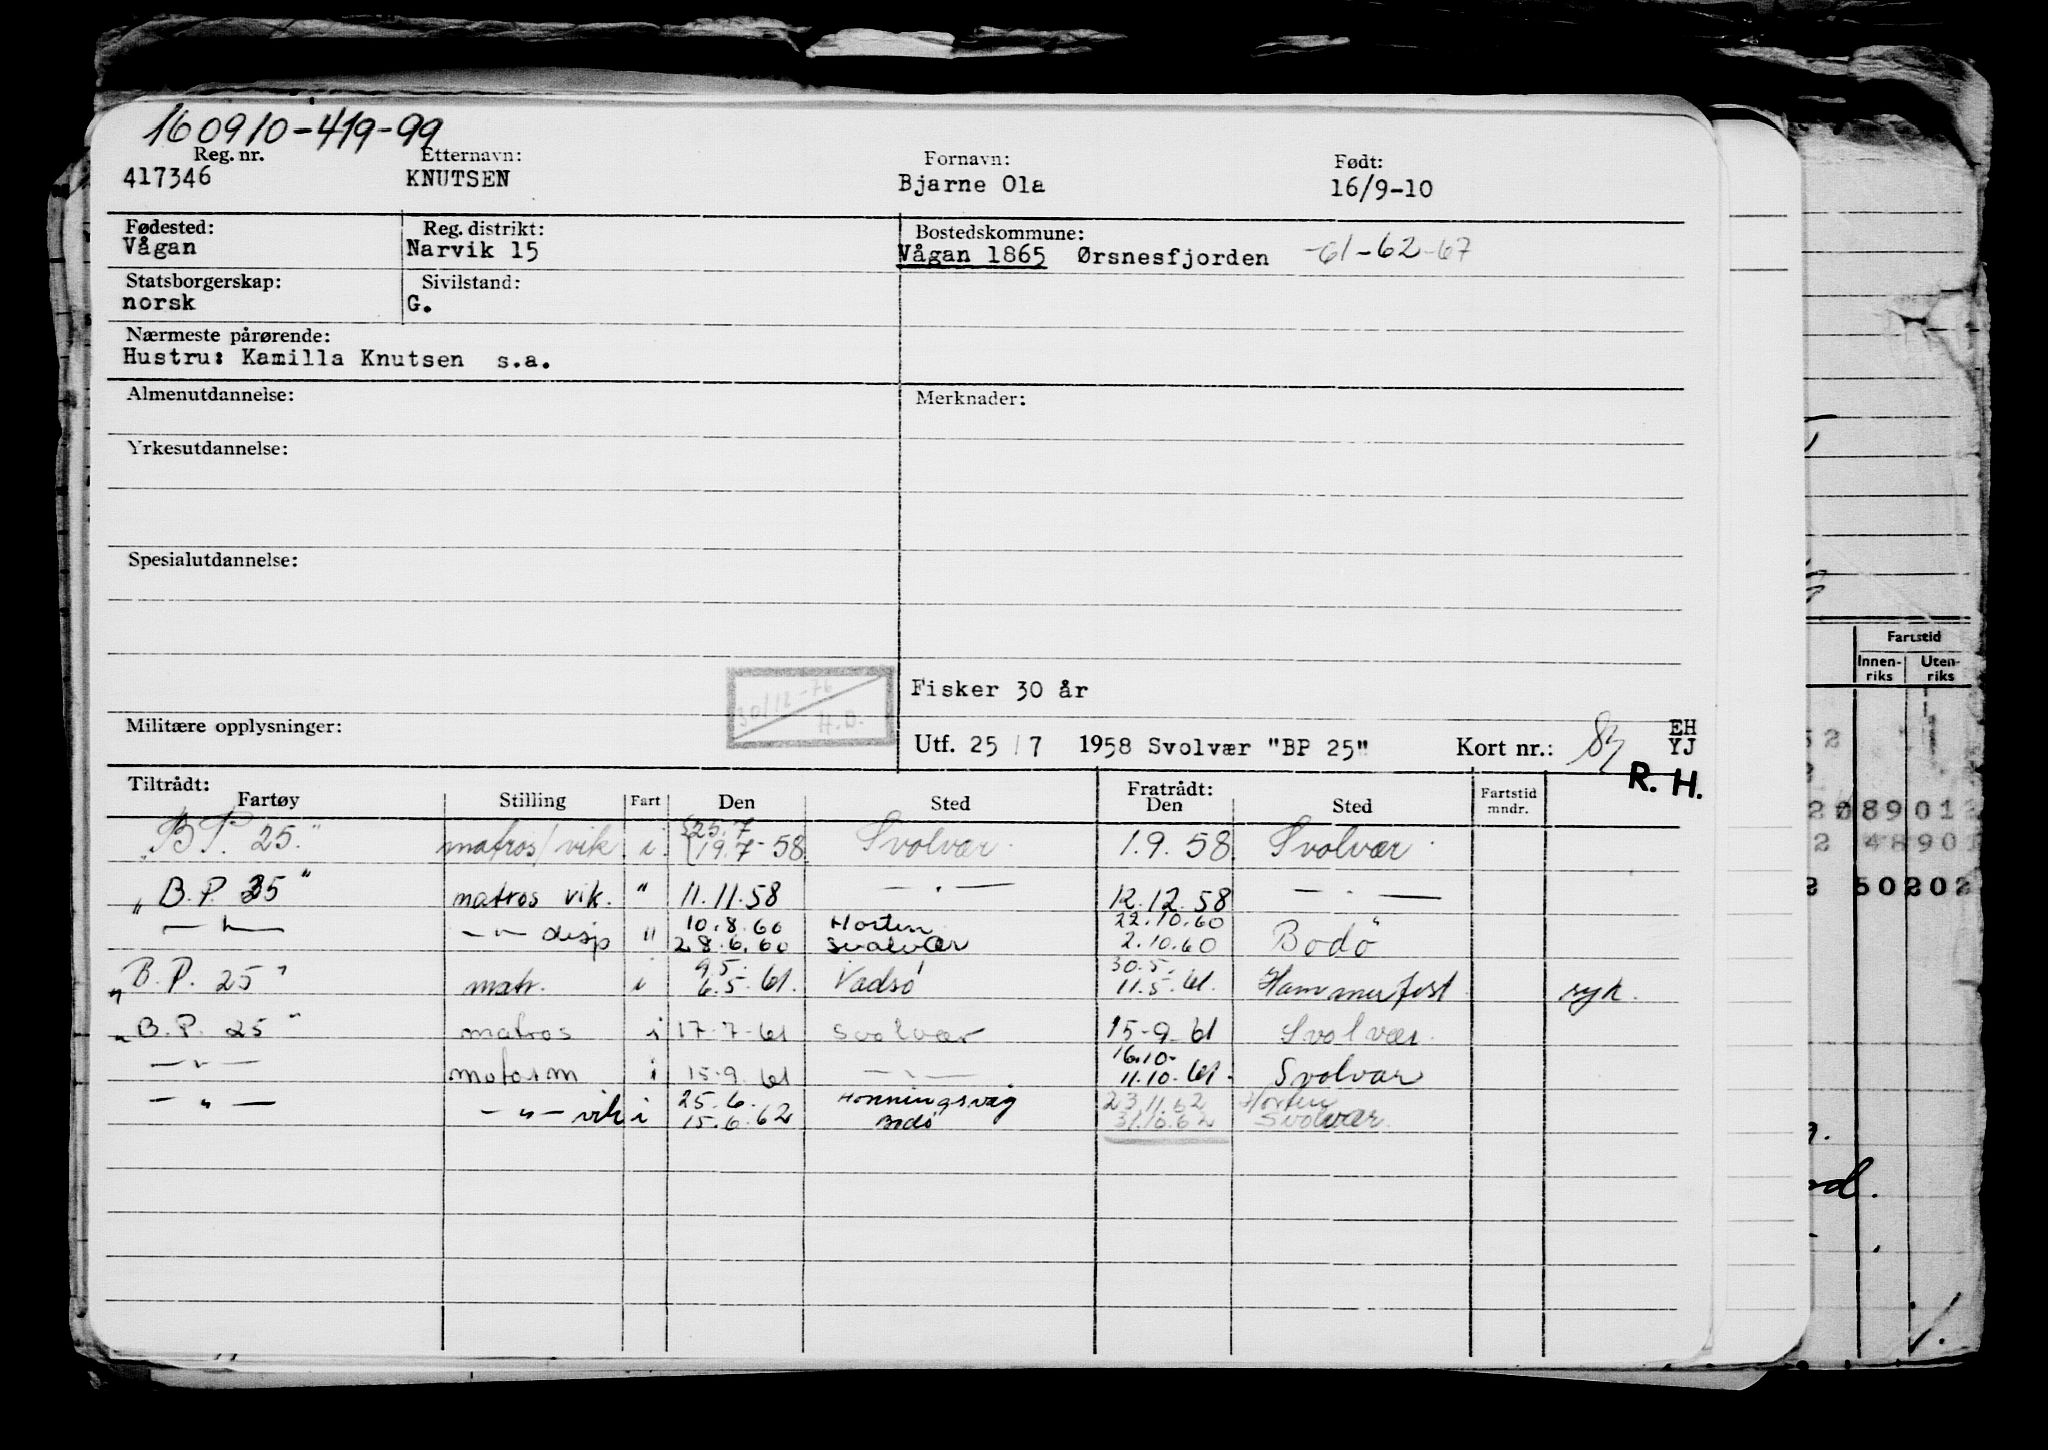 160910-419-99
Reg. nr. Etternavn: Fornavn: Født:
417346 KNUTSEN Bjarne Ola 16/9-10
Fødested: Reg. distrikt: Bostedskommune:
Vågan Narvik 15 Vågan 1865 Ørsnesfjorden -61-62-67
Statsborgerskap: Sivilstand:
norsk G.
Nærmeste pårørende:
Hustru: Kamilla Knutsen s.a.
Almenutdannelse: Merknader:
Yrkesutdannelse:
Spesialutdannelse:
30/12-76
H.O.
Fisker 30 år
Militære opplysninger:
Utf. 25/7 1958 Svolvær "BP 25" Kort nr.:
EH
YJ
R. H.
Tiltrådt: Fratrådt:
Fartøy Stilling Fart Den Sted Den Sted Fartstid mndr.
25.7
"B.P. 25." matros/vik. i. 19.7-58 Svolvær. 1.9.58 Svolvær.
"B.P. 25" matros vik. " 11.11.58 — . — 12.12.58 — . —
10.8.60 Horten 22.10.60
— " — — " — disp " 28.6.60 Svolvær 2.10.60 Bodö
9.5. 30.5.
"B.P. 25" matr. i 6.5.61. Vadsö 11.5.61. Hammerfest ryk.
"B.P. 25" matros i 17-7-61 Svolvær 15-9-61 Svolvær.
16.10-
— " — motorm i 15.9.61 — " — 11.10.61. Svolvær
25.6. Honningsvåg 23.11.62 Horten
— " — — " — vik i 15.6.62 Bodö 31.10.62 Svolvær.
Fartstid
Innen-riks Uten-riks
52
20 89012
2 48901
2 50202